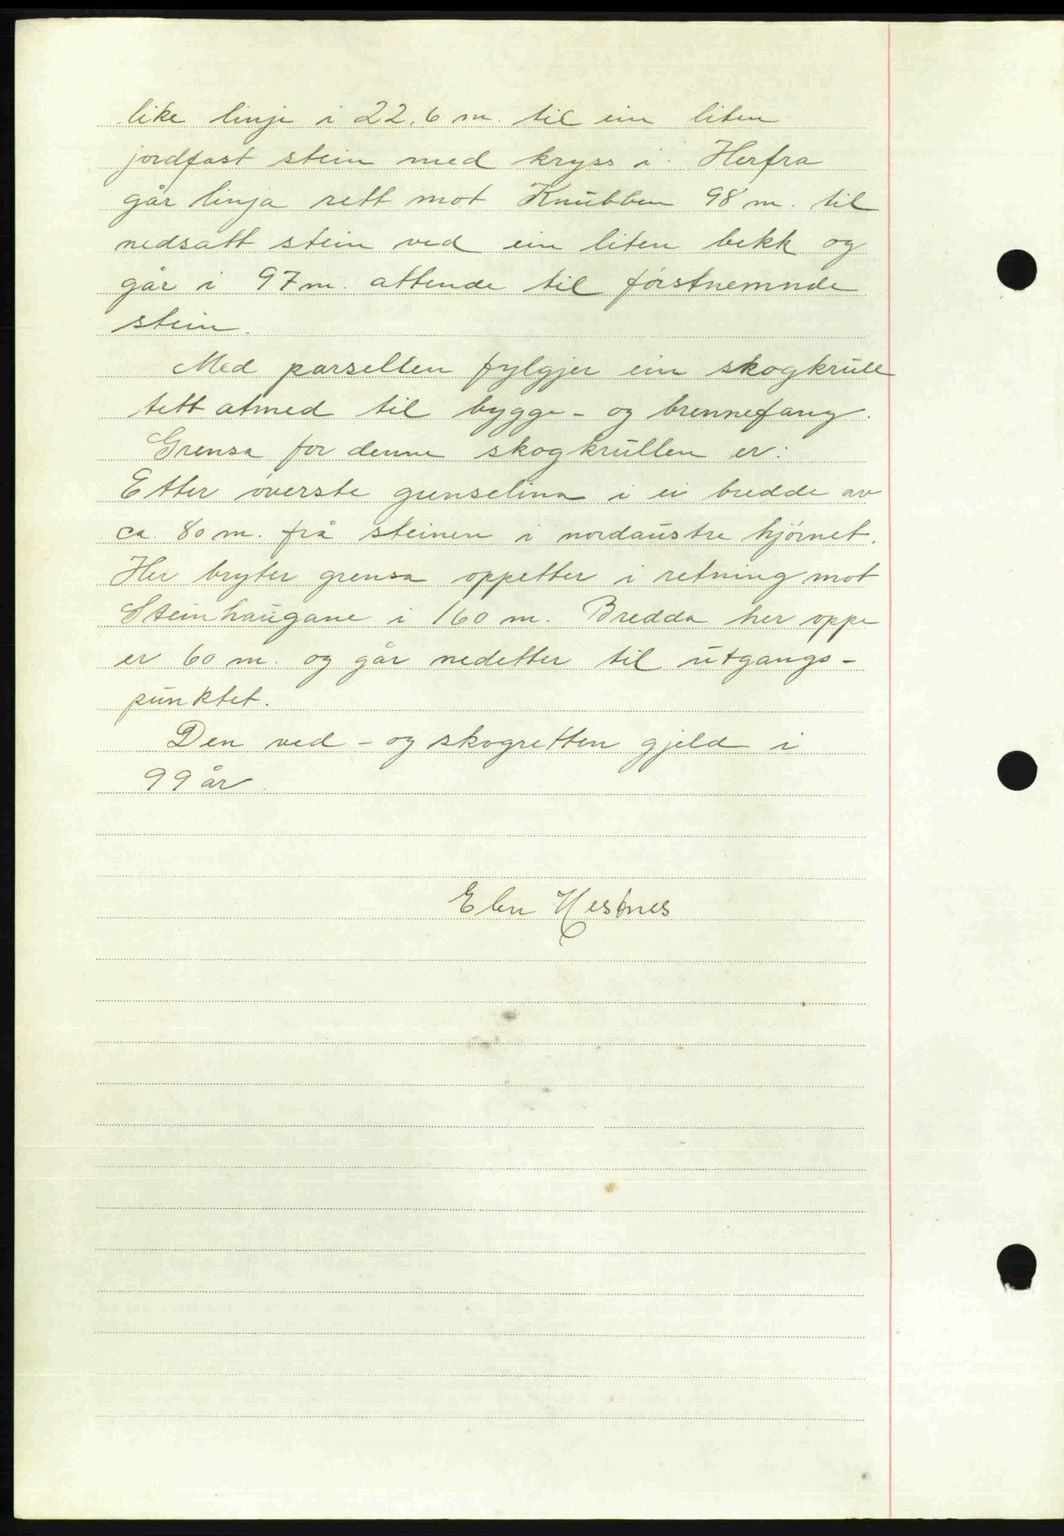 like linje i 22,6 m. til ein liten
jordfast stein med kryss i. Herfra
går linja rett mot Knubben 98 m. til
nedsatt stein ved ein liten bekk og
går i 97 m. attende til førstnemnde
stein.
Med parsellen fylgjer ein skogkrull
tett atmed til bygge- og brennefang.
Grensa for denne skogkrullen er:
Etter øverste grenselina i ei bredde av
ca. 80 m. frå steinen i nordaustre hjørnet.
Her bryter grensa oppetter i retning mot
Steinhaugane i 160 m. Bredda her oppe
er 60 m. og går nedetter til utgangs-
punktet.
Den ved- og skogretten gjeld i
99 år.
Elen Hestnes